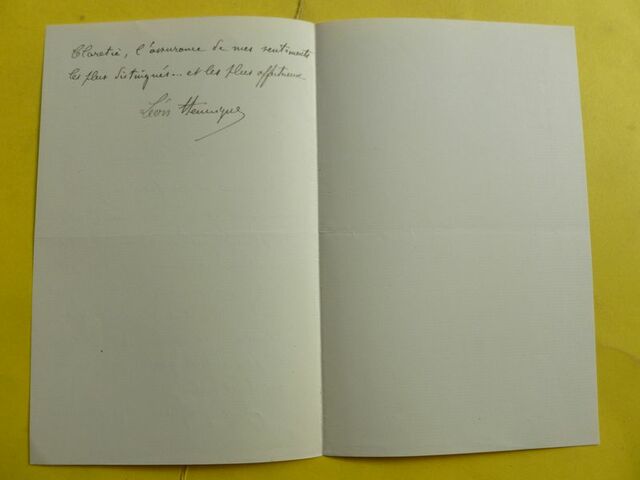 Claretie, l'assurance de mes sentiments
les plus distingués... et les plus affectueux
Léon Hennique